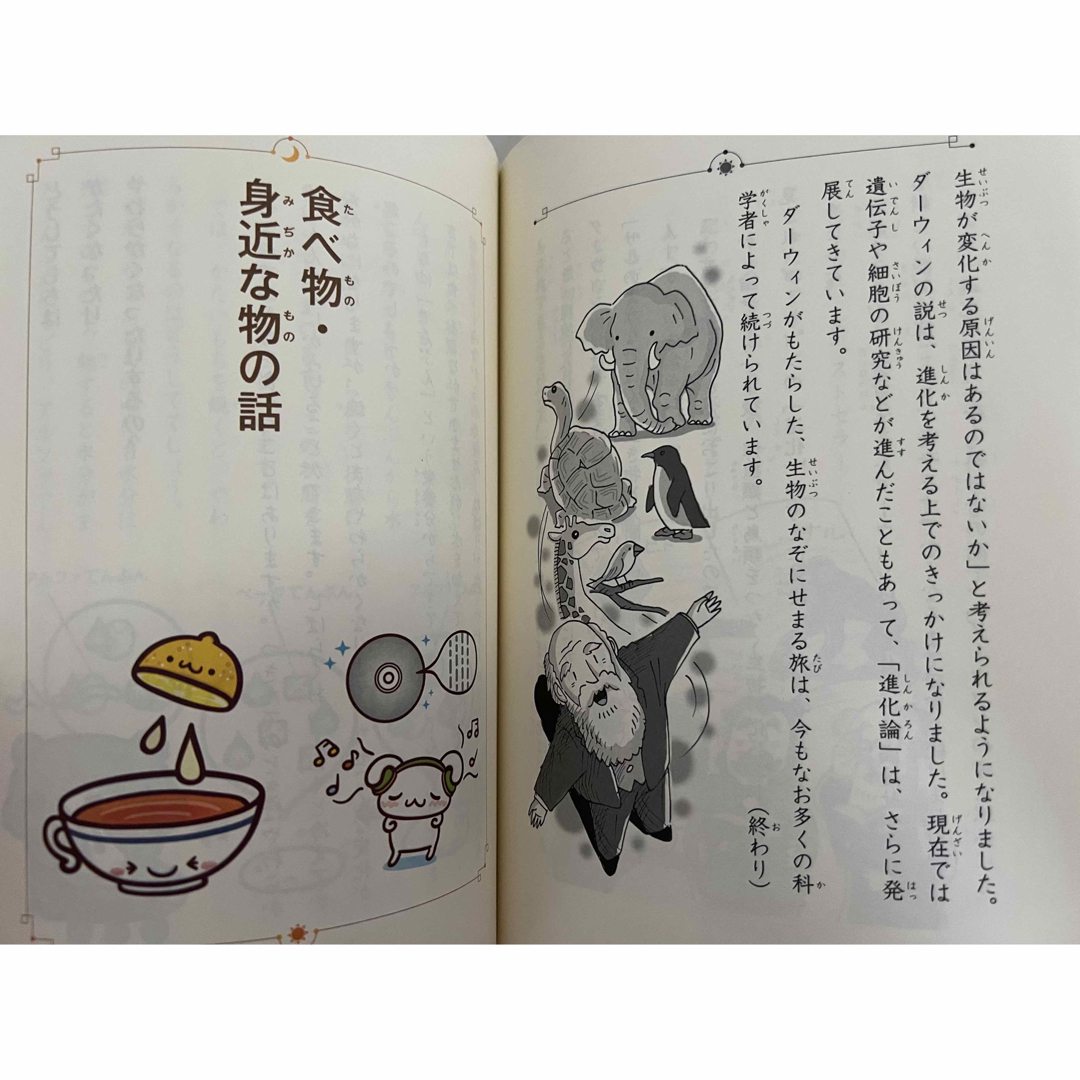 生物が変化する原因はあるのではないか」と考えられるようになりました。
ダーウィンの説は、進化を考える上でのきっかけになりました。現在では
遺伝子や細胞の研究などが進んだこともあって、「進化論」は、さらに発
展してきています。
ダーウィンがもたらした、生物のなぞにせまる旅は、今もなお多くの科
学者によって続けられています。
(終わり)
食べ物・
身近な物の話